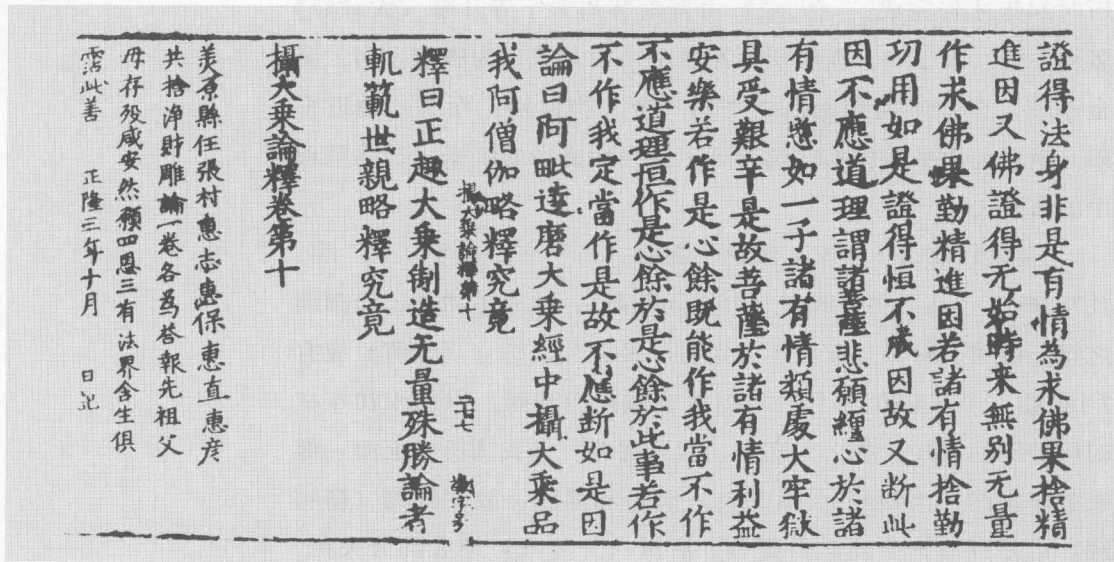 證得法身非是有情為求佛果捨精
進因又佛證得无始時来無别无量
作求佛果勤精進因若諸有情捨勤
功用如是證得恒不成因故又断此
因不應道理謂諸菩薩悲願纏心於諸
有情慈如一子諸有情類處大牢獄
具受艱辛是故菩薩於諸有情利益
安樂若作是心餘既能作我當不作
不應道理恒作是心餘於是心餘於此事若作
不作我定當作是故不應断如是因
論曰阿毗達磨大乗經中攝大乗品
我阿僧伽略釋究竟
攝大乗論釋第十 二七七 字号
釋曰正趣大乗制造无量殊勝論者
軌範世親略釋究竟
攝大乗論釋卷第十
美原縣任張村惠志惠保惠直惠彦
共捨浄財雕論一卷各為荅報先祖父
母存殁咸安然願四恩三有法界含生俱
霑此善 正隆三年十月 日記